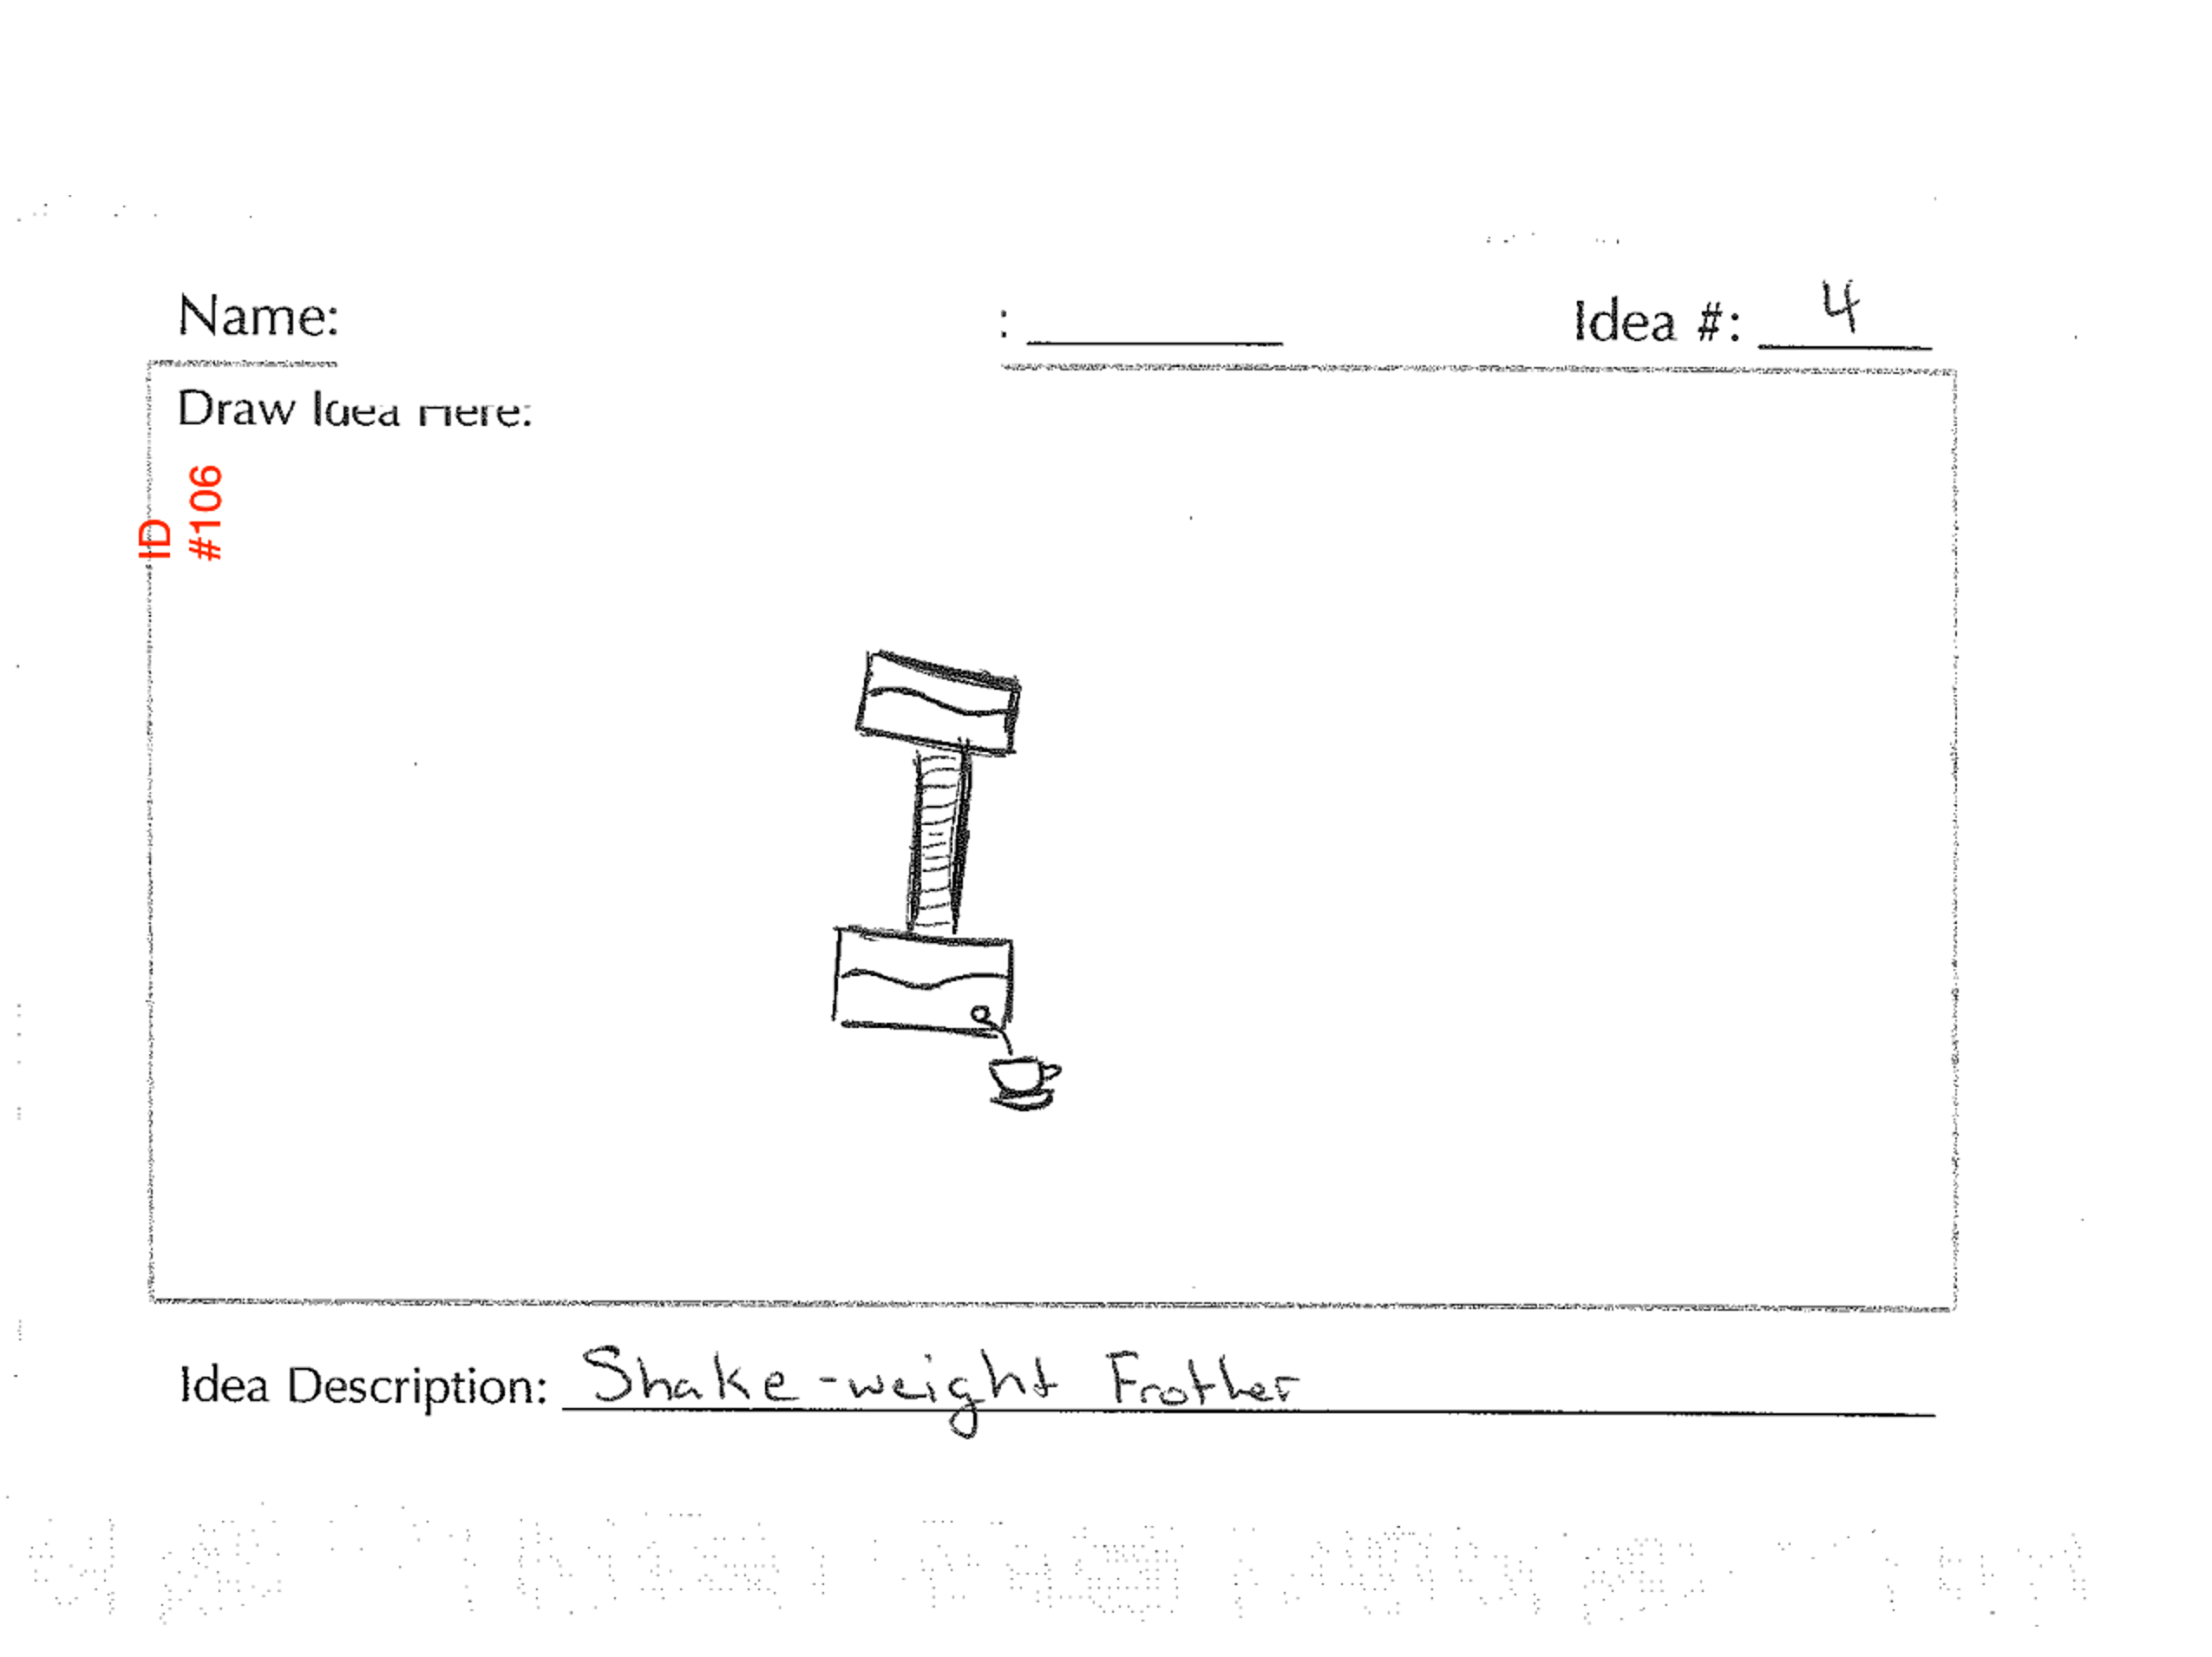 Name: : Idea #: 4
Draw Idea Here:
ID
#106
Idea Description: Shake-weight Frother